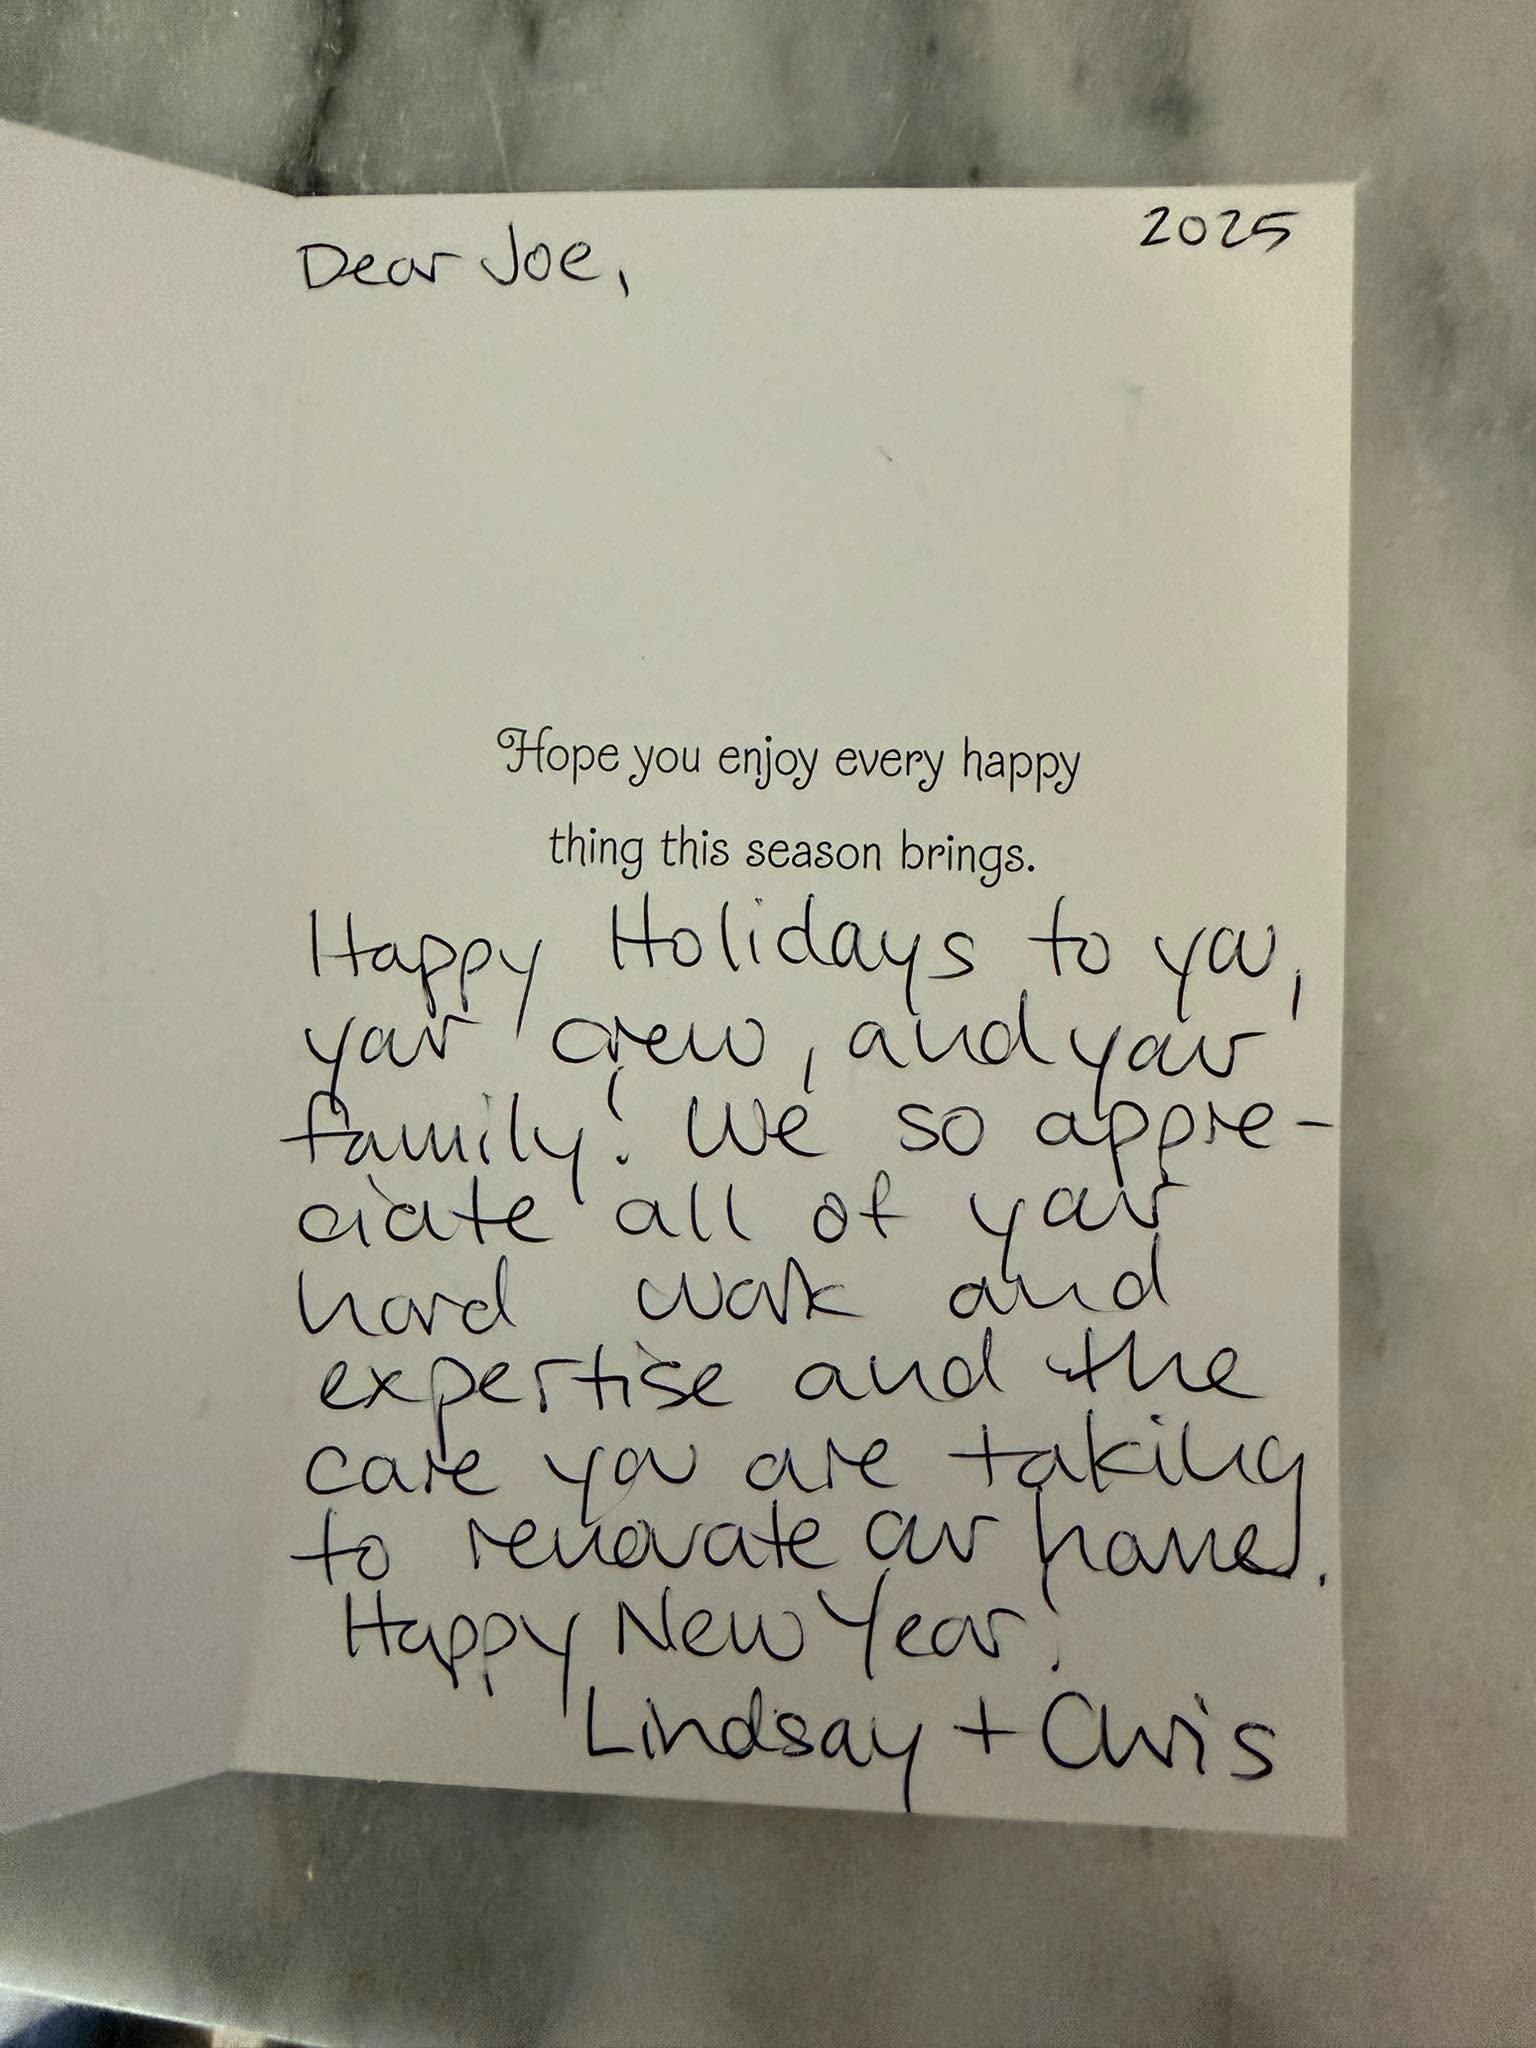 2025
Dear Joe,
Hope you enjoy every happy
thing this season brings.
Happy Holidays to you,
your crew, and your
family! We so appre-
ciate all of your
hard work and
expertise and the
care you are taking
to renovate our home.
Happy New Year!
Lindsay + Chris